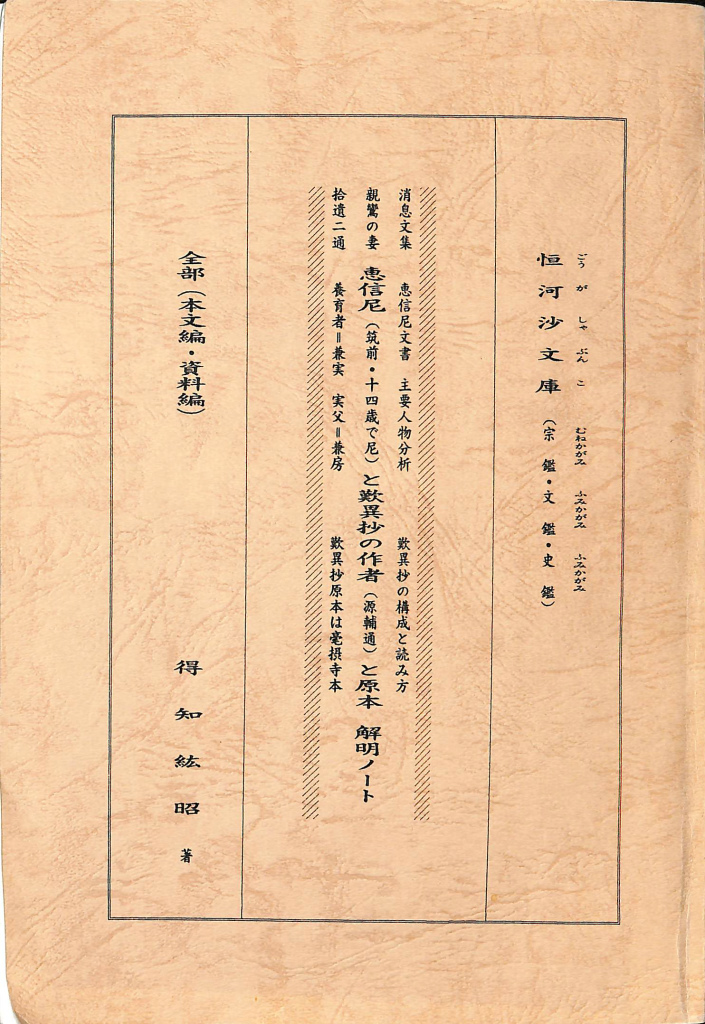 ごうがしゃぶんこ　むねかがみ　ふみかがみ　ふみかがみ
恒河沙文庫（宗鑑・文鑑・史鑑）
消息文集　恵信尼文書　主要人物分析　歎異抄の構成と読み方
親鸞の妻　恵信尼（筑前・十四歳で尼）と歎異抄の作者（源輔通）と原本　解明ノート
拾遺二通　養育者＝兼実　実父＝兼房　歎異抄原本は毫摂寺本
全部（本文編・資料編）
得知紘昭　著